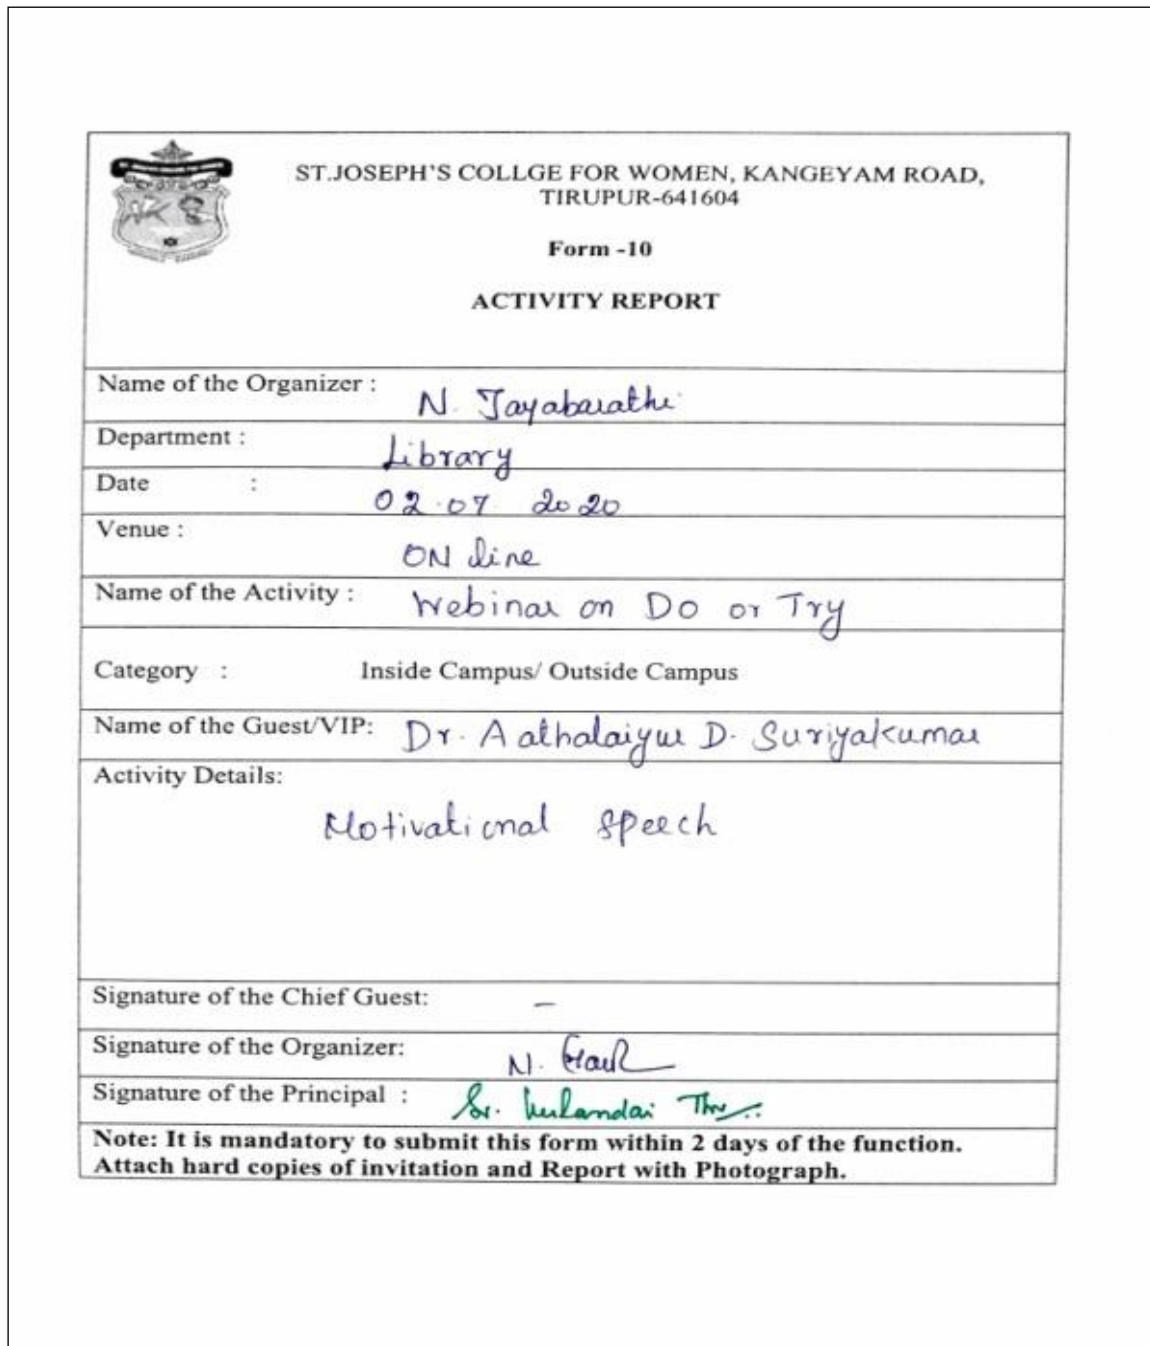 ST.JOSEPH'S COLLGE FOR WOMEN, KANGEYAM ROAD,
TIRUPUR-641604
Form -10
ACTIVITY REPORT
Name of the Organizer : N. Jayabarathi
Department : Library
Date : 02.07.2020
Venue : ON line
Name of the Activity : Webinar on Do or Try
Category : Inside Campus/ Outside Campus
Name of the Guest/VIP: Dr. Aathalaiyur D. Suriyakumar
Activity Details:
Motivational speech
Signature of the Chief Guest: –
Signature of the Organizer: N.
Signature of the Principal : Sr.
Note: It is mandatory to submit this form within 2 days of the function.
Attach hard copies of invitation and Report with Photograph.